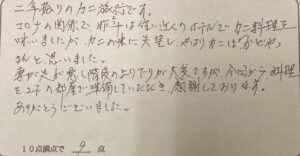 二年振りのカニ旅行です。
コロナの関係で、昨年は近いホテルでカニ料理を
味いましたが、カニの味に失望し、やはりカニは
さんと、思いました。
妻が足が悪く階段の上り下りが大変ですが、今回から、料理
を上下の部屋で準備していただき、感謝しております。
ありがとうございました。
10点満点で 9 点